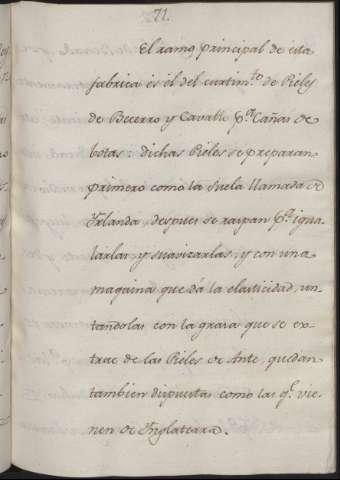 71.
El ramo principal de esta
fabrica es él del curtim.to de Pieles
de Becerro y Cavallo p.a Cañas de
botas: dichas Pieles se preparan
primero como la Suela llamada de
Yrlanda, despues se raspan p.a igua
larlas, y suavizarlas, y con una
maquina que dá la elasticidad, un-
tandolas con la grasa que se ex-
trae de las Pieles de Ante, quedan
tambien dispuestas como las q.e vie-
nen de Ynglaterra.